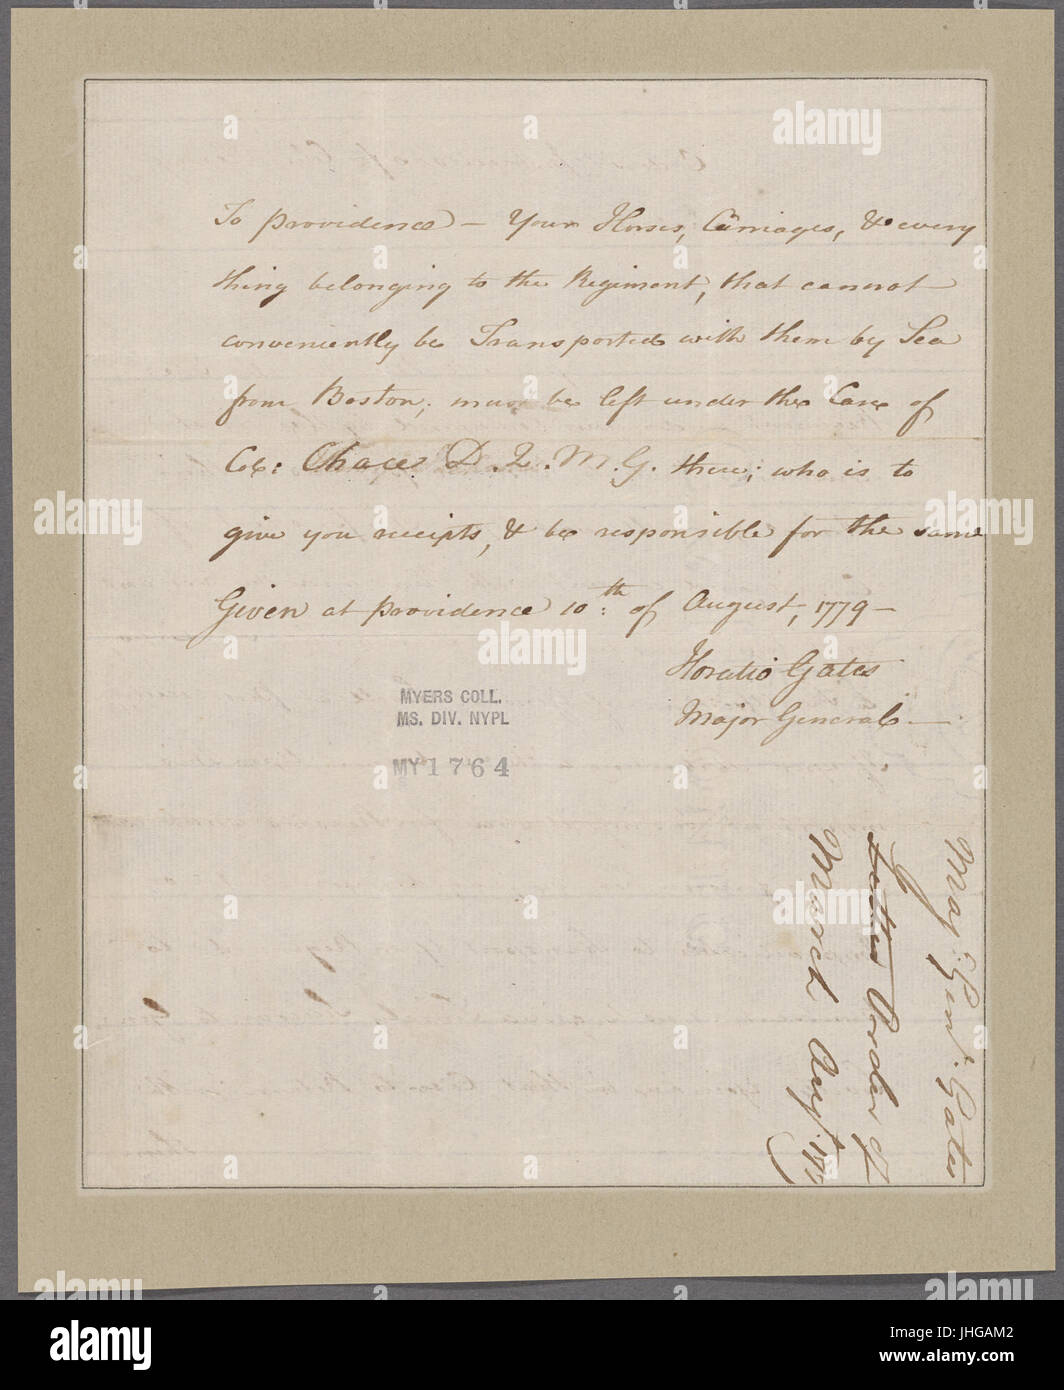 To providence — Your Horses, Carriages, & every
thing belonging to the Regiment, that cannot
conveniently be Transported with them by Sea
from Boston; must be left under the Care of
Col: Chace D. Q. M. G. there; who is to
give you receipts, & be responsible for the same
Given at providence 10:th of August, 1779 —
Horatio Gates
Major General —
MYERS COLL.
MS. DIV. NYPL
MY 1764
Maj: Genl. Gates
Letter Order of
March Augt.
alamy
alamy
alamy
alamy
alamy
alamy
alamy
Image ID: JHGAM2
www.alamy.com